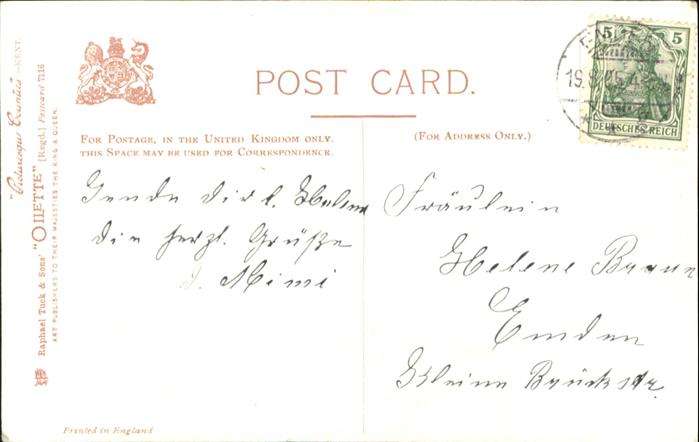 POST CARD.
FOR POSTAGE, IN THE UNITED KINGDOM ONLY,
THIS SPACE MAY BE USED FOR CORRESPONDENCE.
(FOR ADDRESS ONLY.)
5 5
DEUTSCHES REICH
19.
Sende dir l. Helene
die herzl. Grüße
d. Mimi
Fräulein
Helene Braun
Emden
Kleine Brückstr.
"Picturesque Counties" KENT.
Raphael Tuck & Sons' "OILETTE" [Regd.] Postcard 7116
ART PUBLISHERS TO THEIR MAJESTIES THE KING & QUEEN.
Printed in England